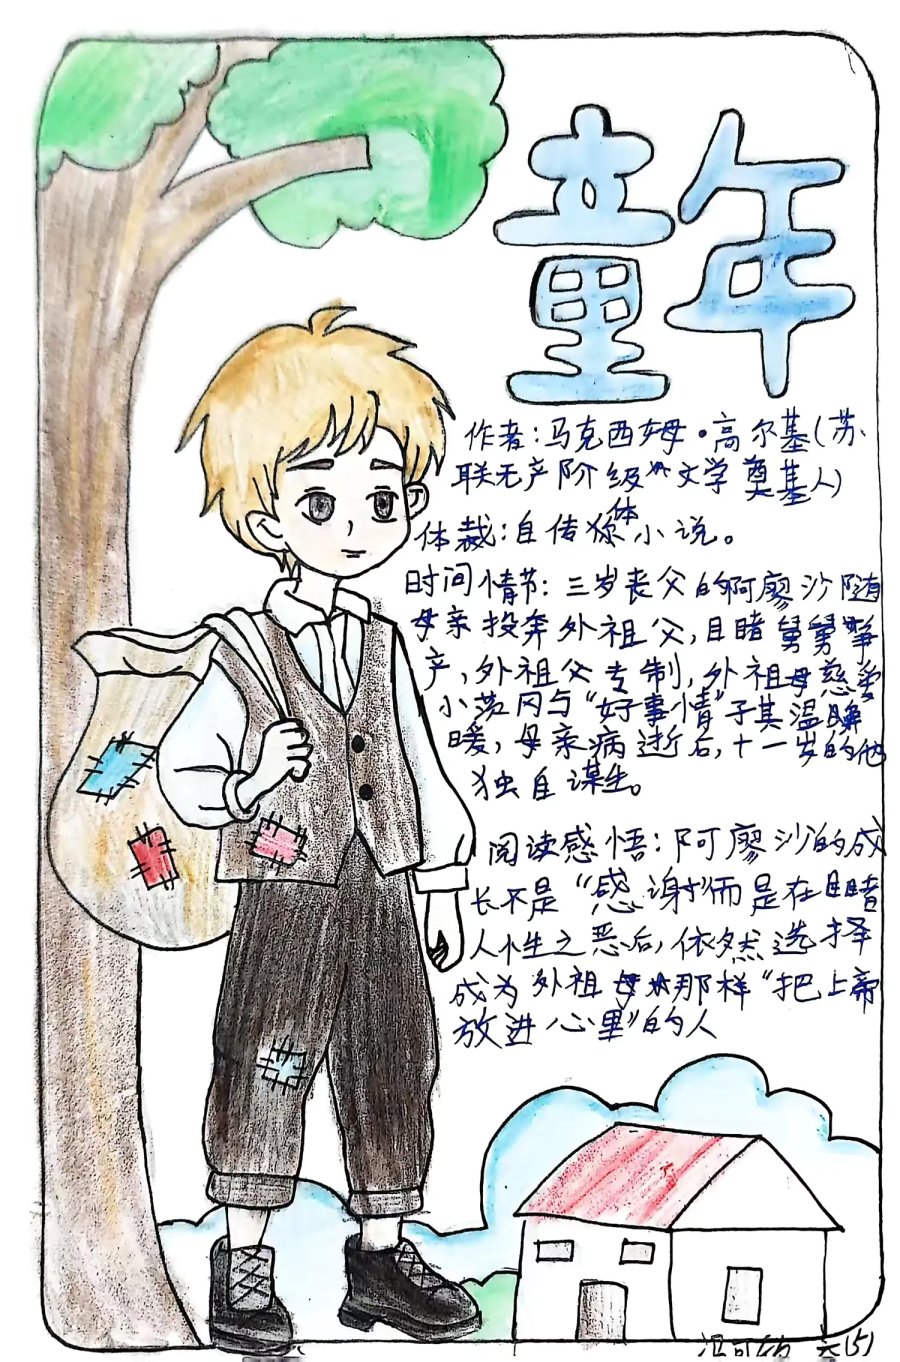 童年
作者:马克西姆·高尔基(苏
联无产阶级文学奠基人)
体裁:自传体小说。
时间情节:三岁丧父的阿廖沙随
母亲投奔外祖父,目睹舅舅争
产,外祖父专制,外祖母慈爱
小茨冈与“好事情”予其温
暖,母亲病逝后,十一岁的他
独自谋生。
阅读感悟:阿廖沙的成
长不是“感谢”而是在目睹
人性之恶后,依然选择
成为外祖母那样“把上帝
放进心里”的人
六(5)